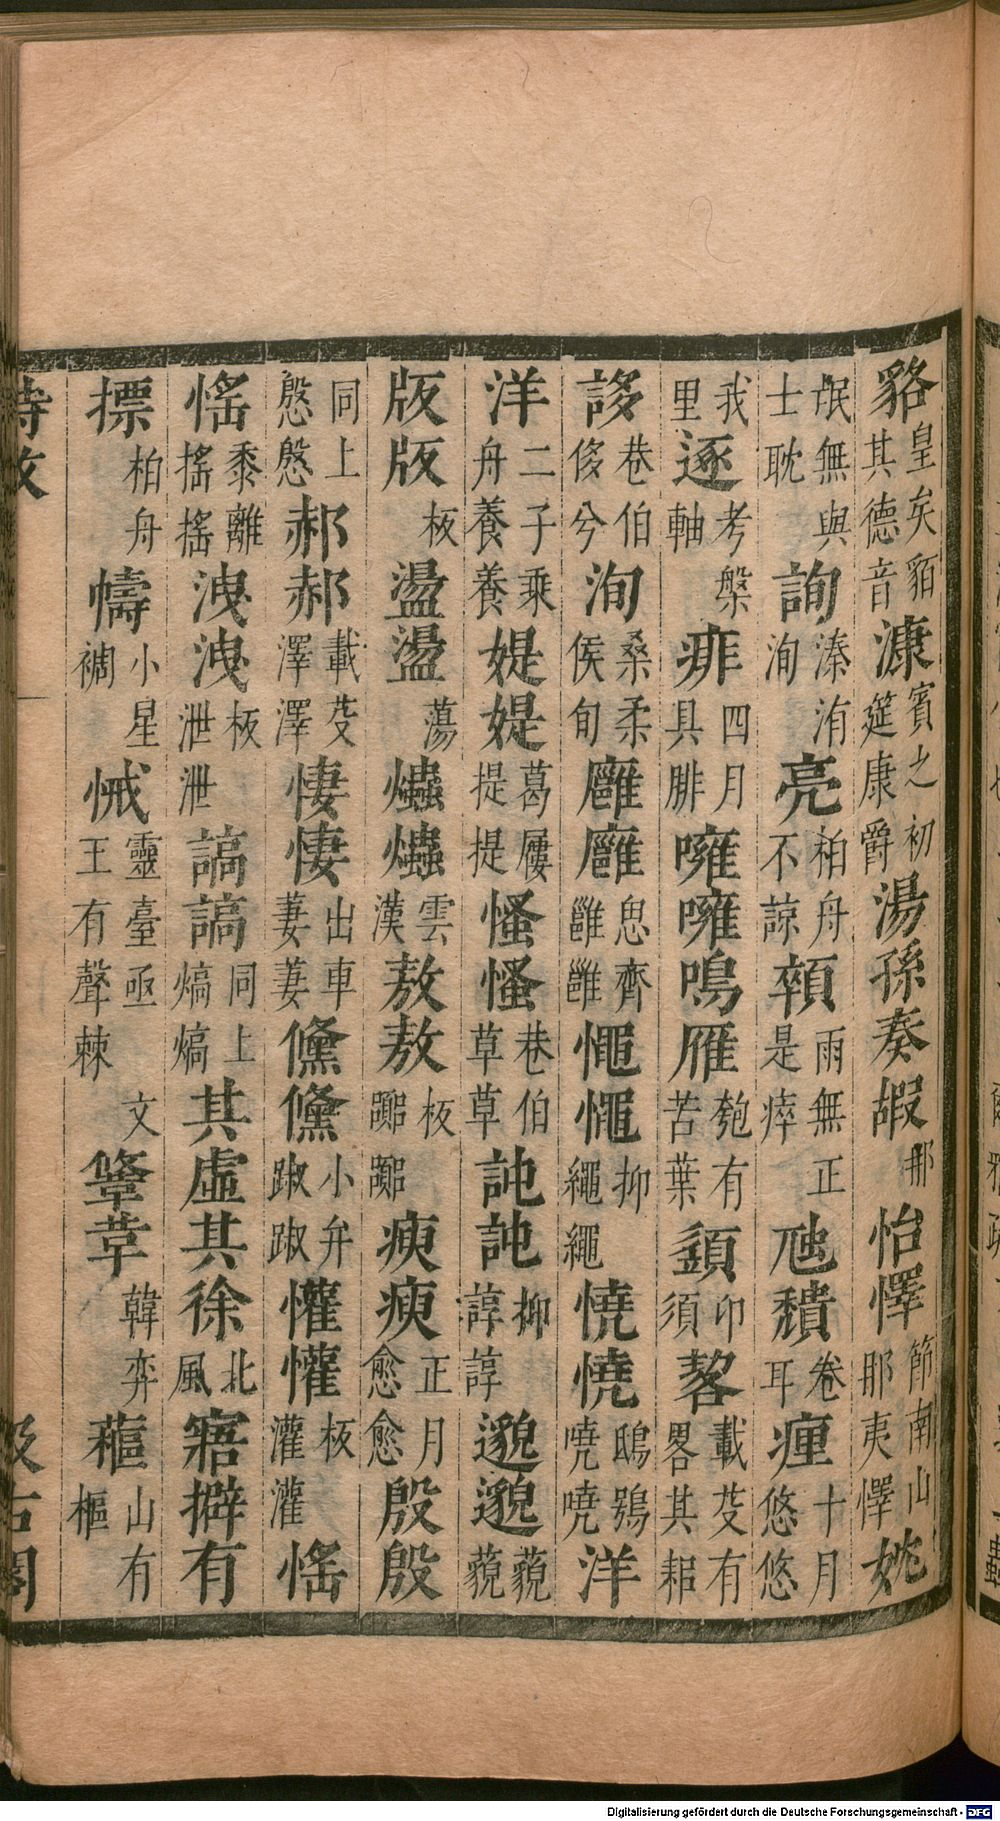 貉皇矣貊其德音漮賓之初筵康爵湯孫奏嘏那怡懌節南山那夷懌姚
氓無與士耽詢溱洧洵亮柏舟不諒顇雨無正是瘁虺穨卷耳𤵜十月悠悠
我里逐考槃軸痱四月具腓噰噰鳴雁匏有苦葉須卬須䂮載芟有畧其耜
誃巷伯侈兮洵桑柔侯旬廱廱思齊雝雝憴憴抑繩繩憢憢鴟鴞嘵嘵洋
洋二子乘舟養養媞媞葛屨提提慅慅巷伯草草訰訰抑諄諄邈邈藐藐
版版板盪盪蕩爞爞雲漢敖敖板嚻嚻瘐瘐正月愈愈殷殷
同上慇慇郝郝載芟澤澤悽悽出車萋萋儵儵小弁踧踧懽懽板灌灌愮
愮黍離搖搖洩洩板泄泄謞謞同上熇熇其虛其徐北風寤擗有
摽柏舟幬小星裯悈靈臺王有聲亟棘文鞏韋韓弈蓲山有樞
Digitalisierung gefördert durch die Deutsche Forschungsgemeinschaft - DFG